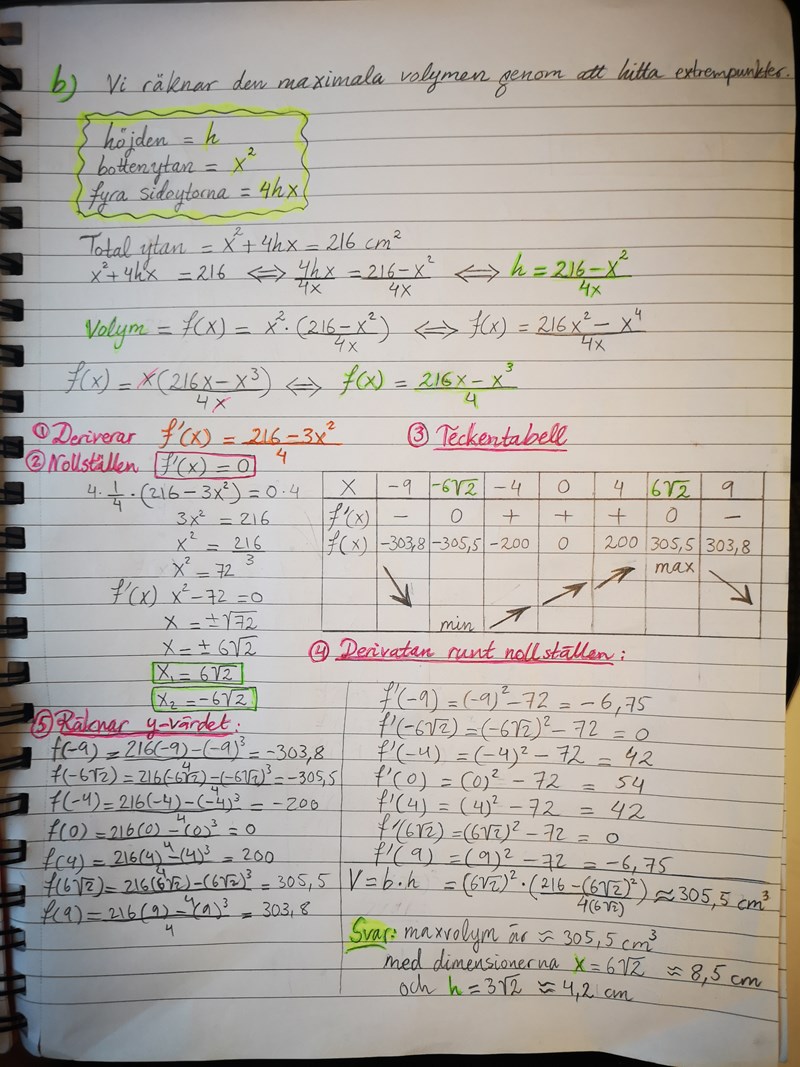 b) Vi räknar den maximala volymen genom att hitta extrempunkter.
höjden = h
bottenytan = x²
fyra sidoytorna = 4hx
Total ytan = x² + 4hx = 216 cm²
x² + 4hx = 216 ⟺ 4hx/4x = 216 − x²/4x ⟺ h = 216 − x²/4x
Volym = f(x) = x² · (216 − x²)/4x ⟺ f(x) = 216x² − x⁴/4x
f(x) = x(216x − x³)/4x ⟺ f(x) = 216x − x³/4
① Deriverar f'(x) = 216 − 3x²/4
② Nollställen f'(x) = 0
4 · 1/4 · (216 − 3x²) = 0 · 4
3x² = 216
x² = 216/3
x² = 72
f'(x) x² − 72 = 0
x = ±√72
x = ± 6√2
x₁ = 6√2
x₂ = −6√2
③ Teckentabell
X −9 −6√2 −4 0 4 6√2 9
f'(x) − 0 + + + 0 −
f(x) −303,8 −305,5 −200 0 200 305,5 303,8
↘ ↗ ↗ max ↘
min ↗
④ Derivatan runt nollställen:
f'(−9) = (−9)² − 72 = −6,75
f'(−6√2) = (−6√2)² − 72 = 0
f'(−4) = (−4)² − 72 = 42
f'(0) = (0)² − 72 = 54
f'(4) = (4)² − 72 = 42
f'(6√2) = (6√2)² − 72 = 0
f'(9) = (9)² − 72 = −6,75
⑤ Räknar y-värdet:
f(−9) = 216(−9) − (−9)³/4 = −303,8
f(−6√2) = 216(−6√2) − (−6√2)³/4 = −305,5
f(−4) = 216(−4) − (−4)³/4 = −200
f(0) = 216(0) − (0)³/4 = 0
f(4) = 216(4) − (4)³/4 = 200
f(6√2) = 216(6√2) − (6√2)³/4 = 305,5
f(9) = 216(9) − (9)³/4 = 303,8
V = b · h = (6√2)² · (216 − (6√2)²)/4(6√2) ≈ 305,5 cm³
Svar: maxvolym är ≈ 305,5 cm³
med dimensionerna x = 6√2 ≈ 8,5 cm
och h = 3√2 ≈ 4,2 cm